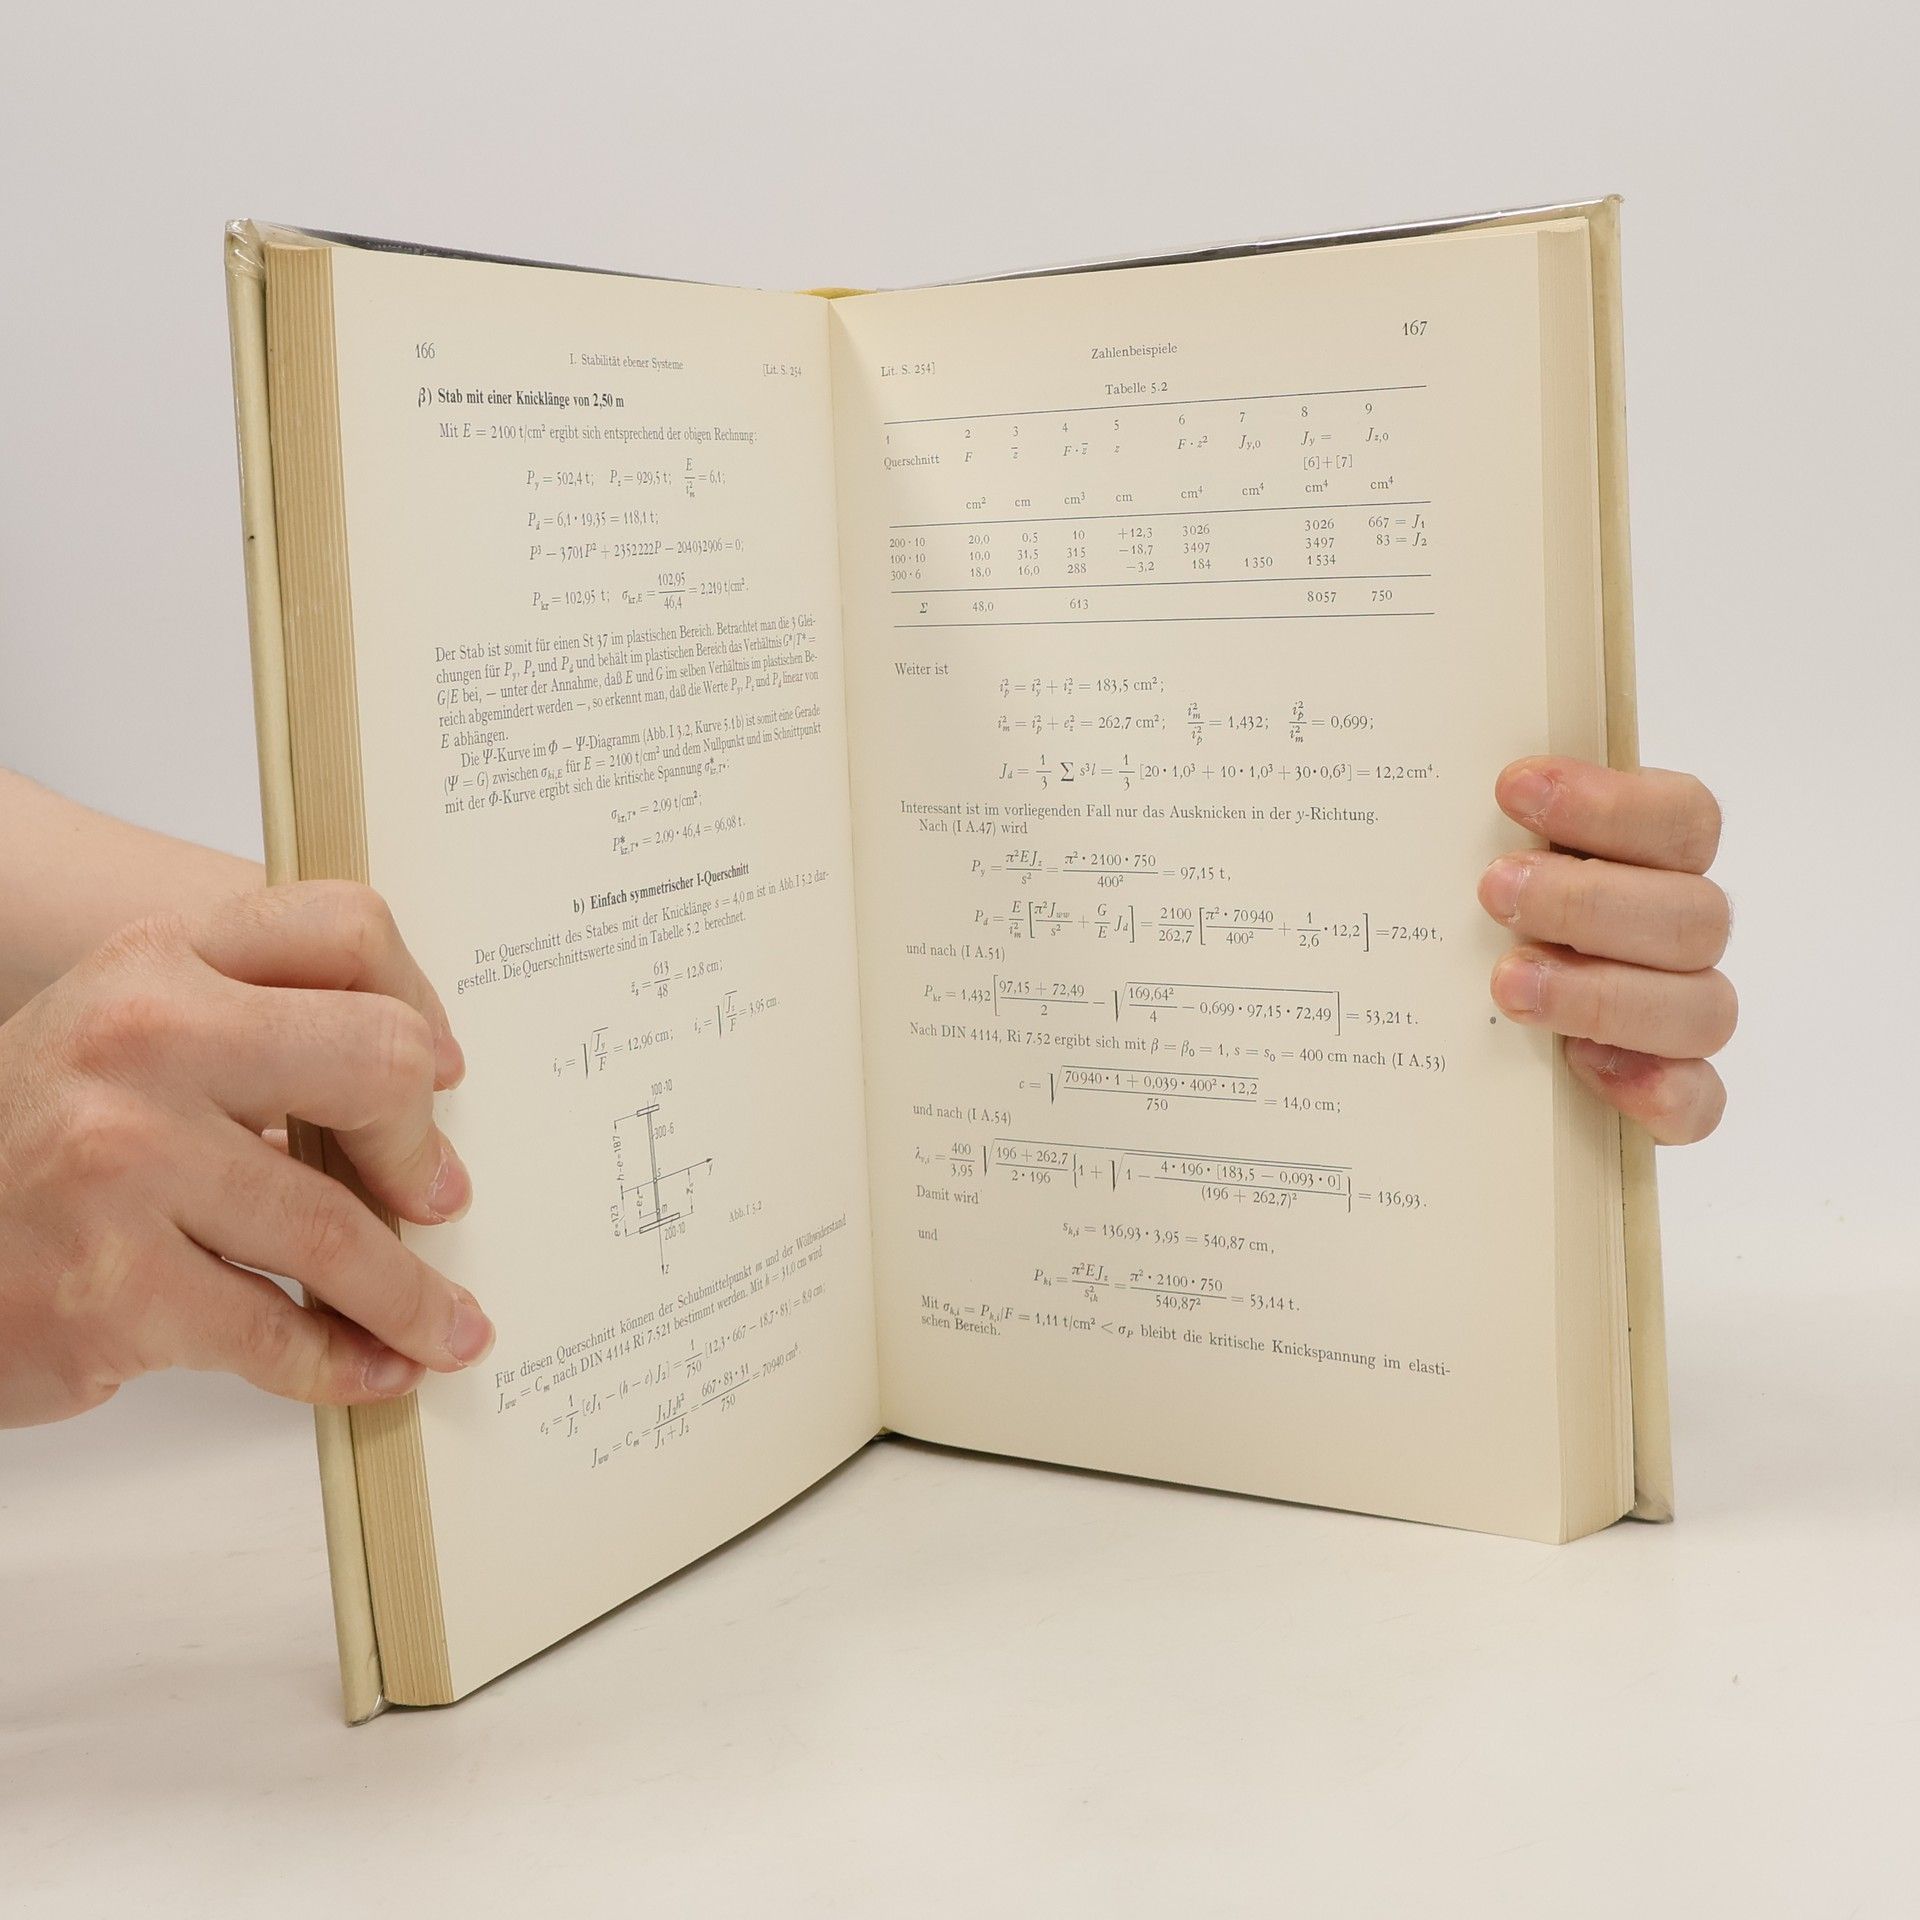 166
I. Stabilität ebener Systeme
[Lit. S. 254
β) Stab mit einer Knicklänge von 2,50 m
Mit E = 2100 t/cm² ergibt sich entsprechend der obigen Rechnung:
P_y = 502,4 t; P_z = 929,5 t; E/i_m² = 6,1;
P_d = 6,1 · 19,35 = 118,1 t;
P³ − 3701P² + 2352222P − 204032906 = 0;
P_kr = 102,95 t; σ_kr,E = 102,95/46,4 = 2,219 t/cm².
Der Stab ist somit für einen St 37 im plastischen Bereich. Betrachtet man die 3 Glei-
chungen für P_y, P_z und P_d und behält im plastischen Bereich das Verhältnis G*/T* =
G/E bei, — unter der Annahme, daß E und G im selben Verhältnis im plastischen Be-
reich abgemindert werden —, so erkennt man, daß die Werte P_y, P_z und P_d linear von
E abhängen.
Die Ψ-Kurve im Φ − Ψ-Diagramm (Abb. I 3.2, Kurve 5.1b) ist somit eine Gerade
(Ψ = G) zwischen σ_ki,E für E = 2100 t/cm² und dem Nullpunkt und im Schnittpunkt
mit der Φ-Kurve ergibt sich die kritische Spannung σ*_kr,T*:
σ_kr,T* = 2,09 t/cm²;
P*_kr,T* = 2,09 · 46,4 = 96,98 t.
b) Einfach symmetrischer I-Querschnitt
Der Querschnitt des Stabes mit der Knicklänge s = 4,0 m ist in Abb. I 5.2 dar-
gestellt. Die Querschnittswerte sind in Tabelle 5.2 berechnet.
z̄_s = 613/48 = 12,8 cm;
i_y = √(J_y/F) = 12,96 cm; i_z = √(J_z/F) = 3,95 cm.
100·10
300·6
h−e=187
y
s
e=123
e_z
z_s
m
200·10
z
Abb. I 5.2
Für diesen Querschnitt können der Schubmittelpunkt m und der Wölbwiderstand
J_ww = C_m nach DIN 4114 Ri 7.521 bestimmt werden. Mit h = 31,0 cm wird
e_z = 1/J_z [eJ₁ − (h − e) J₂] = 1/750 [12,3 · 667 − 18,7 · 83] = 8,9 cm;
J_ww = C_m = J₁J₂h²/(J₁ + J₂) = 667 · 83 · 31/750 = 70940 cm⁶.
167
Zahlenbeispiele
Lit. S. 254]
Tabelle 5.2
1 2 3 4 5 6 7 8 9
Querschnitt F z̄ F · z̄ z F · z² J_y,0 J_y = J_z,0
[6]+[7]
cm² cm cm³ cm cm⁴ cm⁴ cm⁴ cm⁴
200 · 10 20,0 0,5 10 +12,3 3026 3026 667 = J₁
100 · 10 10,0 31,5 315 −18,7 3497 3497 83 = J₂
300 · 6 18,0 16,0 288 −3,2 184 1350 1534
Σ 48,0 613 8057 750
Weiter ist
i_p² = i_y² + i_z² = 183,5 cm²;
i_m² = i_p² + e_z² = 262,7 cm²; i_m²/i_p² = 1,432; i_p²/i_m² = 0,699;
J_d = 1/3 ∑ s³l = 1/3 [20 · 1,0³ + 10 · 1,0³ + 30 · 0,6³] = 12,2 cm⁴.
Interessant ist im vorliegenden Fall nur das Ausknicken in der y-Richtung.
Nach (I A.47) wird
P_y = π²EJ_z/s² = π² · 2100 · 750/400² = 97,15 t,
P_d = E/i_m² [π²J_ww/s² + G/E J_d] = 2100/262,7 [π² · 70940/400² + 1/2,6 · 12,2] = 72,49 t,
und nach (I A.51)
P_kr = 1,432 [(97,15 + 72,49)/2 − √(169,64²/4 − 0,699 · 97,15 · 72,49)] = 53,21 t.
Nach DIN 4114, Ri 7.52 ergibt sich mit β = β₀ = 1, s = s₀ = 400 cm nach (I A.53)
c = √((70940 · 1 + 0,039 · 400² · 12,2)/750) = 14,0 cm;
und nach (I A.54)
λ_v,i = 400/3,95 √((196 + 262,7)/(2 · 196) {1 + √(1 − 4 · 196 · [183,5 − 0,093 · 0]/(196 + 262,7)²)}) = 136,93.
Damit wird
s_k,i = 136,93 · 3,95 = 540,87 cm,
und
P_ki = π²EJ_z/s_ik² = π² · 2100 · 750/540,87² = 53,14 t.
Mit σ_k,i = P_k,i/F = 1,11 t/cm² < σ_P bleibt die kritische Knickspannung im elasti-
schen Bereich.